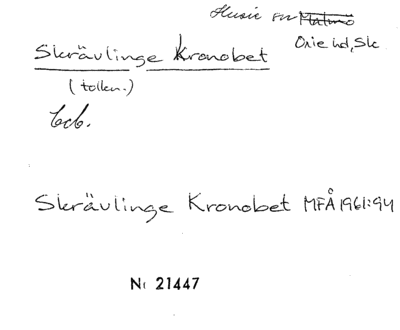 Husie sn Malmö
Oxie hd, Sk
Skrävlinge Kronobet
(tolkn.)
Beb.
Skrävlinge Kronobet MFÅ 1961:94
Nr 21447